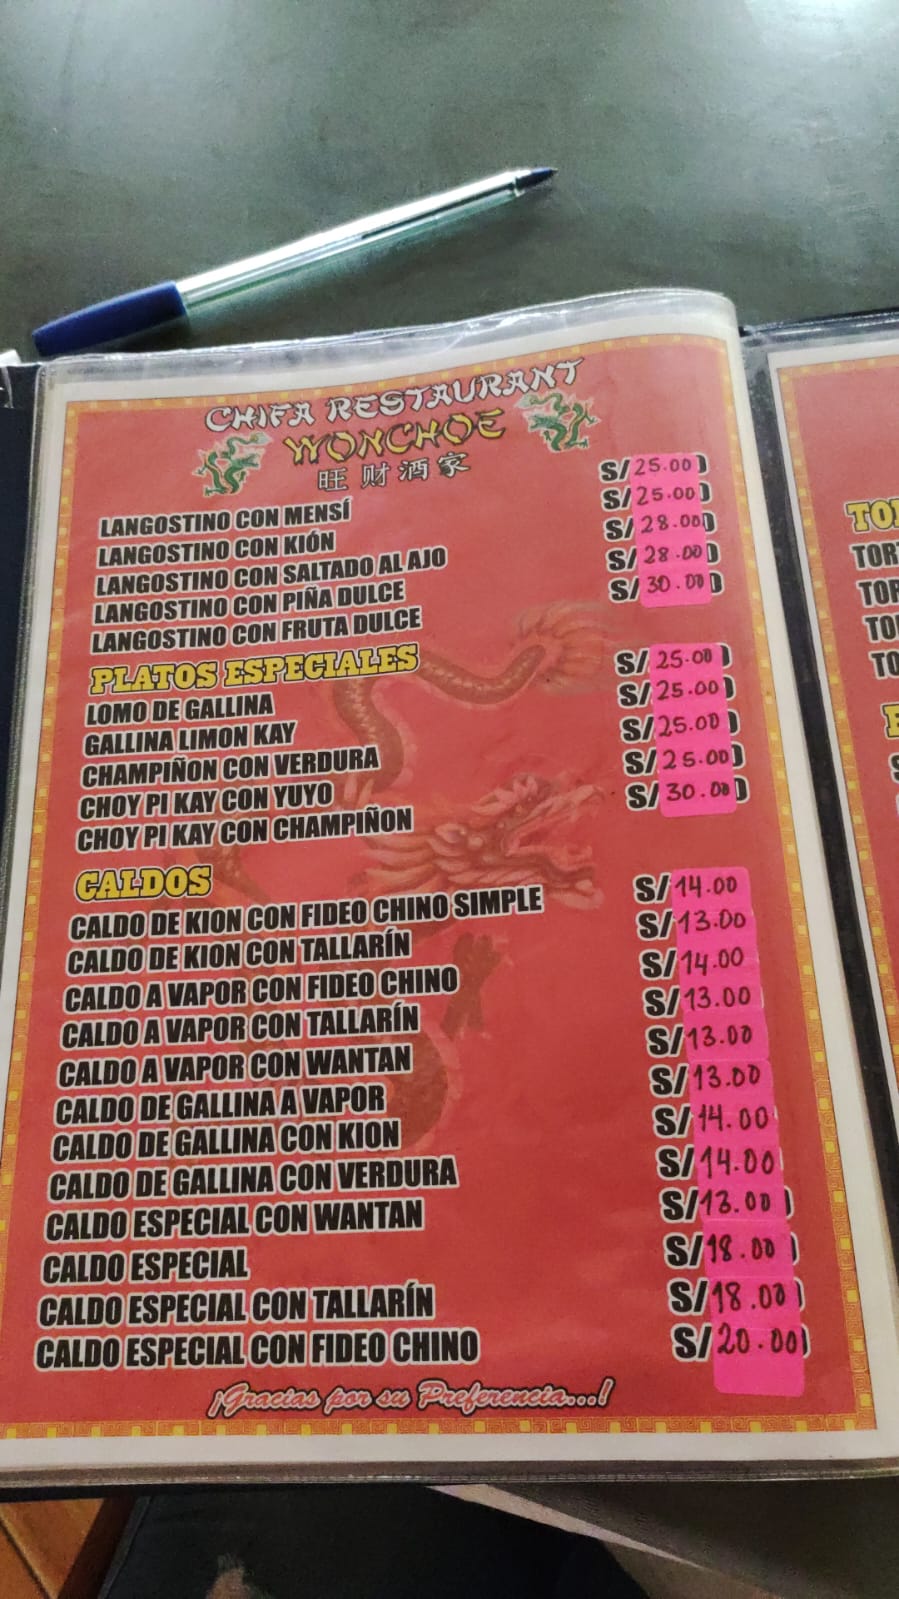 CHIFA RESTAURANT
WONCHOE
旺财酒家
LANGOSTINO CON MENSÍ S/25.00
LANGOSTINO CON KIÓN S/25.00
LANGOSTINO CON SALTADO AL AJO S/28.00
LANGOSTINO CON PIÑA DULCE S/28.00
LANGOSTINO CON FRUTA DULCE S/30.00
PLATOS ESPECIALES
LOMO DE GALLINA S/25.00
GALLINA LIMON KAY S/25.00
CHAMPIÑON CON VERDURA S/25.00
CHOY PI KAY CON YUYO S/25.00
CHOY PI KAY CON CHAMPIÑON S/30.00
CALDOS
CALDO DE KION CON FIDEO CHINO SIMPLE S/14.00
CALDO DE KION CON TALLARÍN S/13.00
CALDO A VAPOR CON FIDEO CHINO S/14.00
CALDO A VAPOR CON TALLARÍN S/13.00
CALDO A VAPOR CON WANTAN S/13.00
CALDO DE GALLINA A VAPOR S/13.00
CALDO DE GALLINA CON KION S/14.00
CALDO DE GALLINA CON VERDURA S/14.00
CALDO ESPECIAL CON WANTAN S/13.00
CALDO ESPECIAL S/18.00
CALDO ESPECIAL CON TALLARÍN S/18.00
CALDO ESPECIAL CON FIDEO CHINO S/20.00
¡Gracias por su Preferencia...!